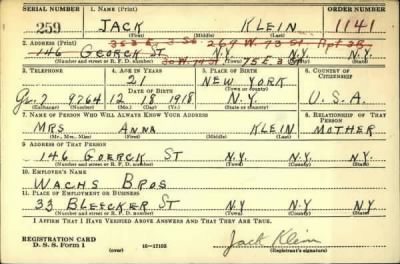 SERIAL NUMBER 1. NAME (Print) ORDER NUMBER
259 JACK KLEIN 1141
(First) (Middle) (Last)
2. ADDRESS (Print) 353 E. 3 St. 269 W. 73 St. Apt 2B
146 GEORCK ST N.Y. N.Y. N.Y.
(Number and street or R. F. D. number) 75 E 3 St (Town) (County) (State)
3. TELEPHONE 4. AGE IN YEARS 5. PLACE OF BIRTH 6. COUNTRY OF CITIZENSHIP
21 NEW YORK
DATE OF BIRTH (Town or county)
7 9264 12 18 1918 N.Y. U.S.A.
(Exchange) (Number) (Mo.) (Day) (Yr.) (State or country)
7. NAME OF PERSON WHO WILL ALWAYS KNOW YOUR ADDRESS 8. RELATIONSHIP OF THAT PERSON
MRS ANNA KLEIN MOTHER
(Mr., Mrs., Miss) (First) (Middle) (Last)
9. ADDRESS OF THAT PERSON
146 GOERCK ST N.Y. N.Y. N.Y.
(Number and street or R. F. D. number) (Town) (County) (State)
10. EMPLOYER'S NAME
WACHS BROS
11. PLACE OF EMPLOYMENT OR BUSINESS
33 BLEECKER ST N.Y. N.Y. N.Y.
(Number and street or R. F. D. number) (Town) (County) (State)
I AFFIRM THAT I HAVE VERIFIED ABOVE ANSWERS AND THAT THEY ARE TRUE.
REGISTRATION CARD
D. S. S. Form 1 (over) 16-17105 Jack Klein
(Registrant's signature)